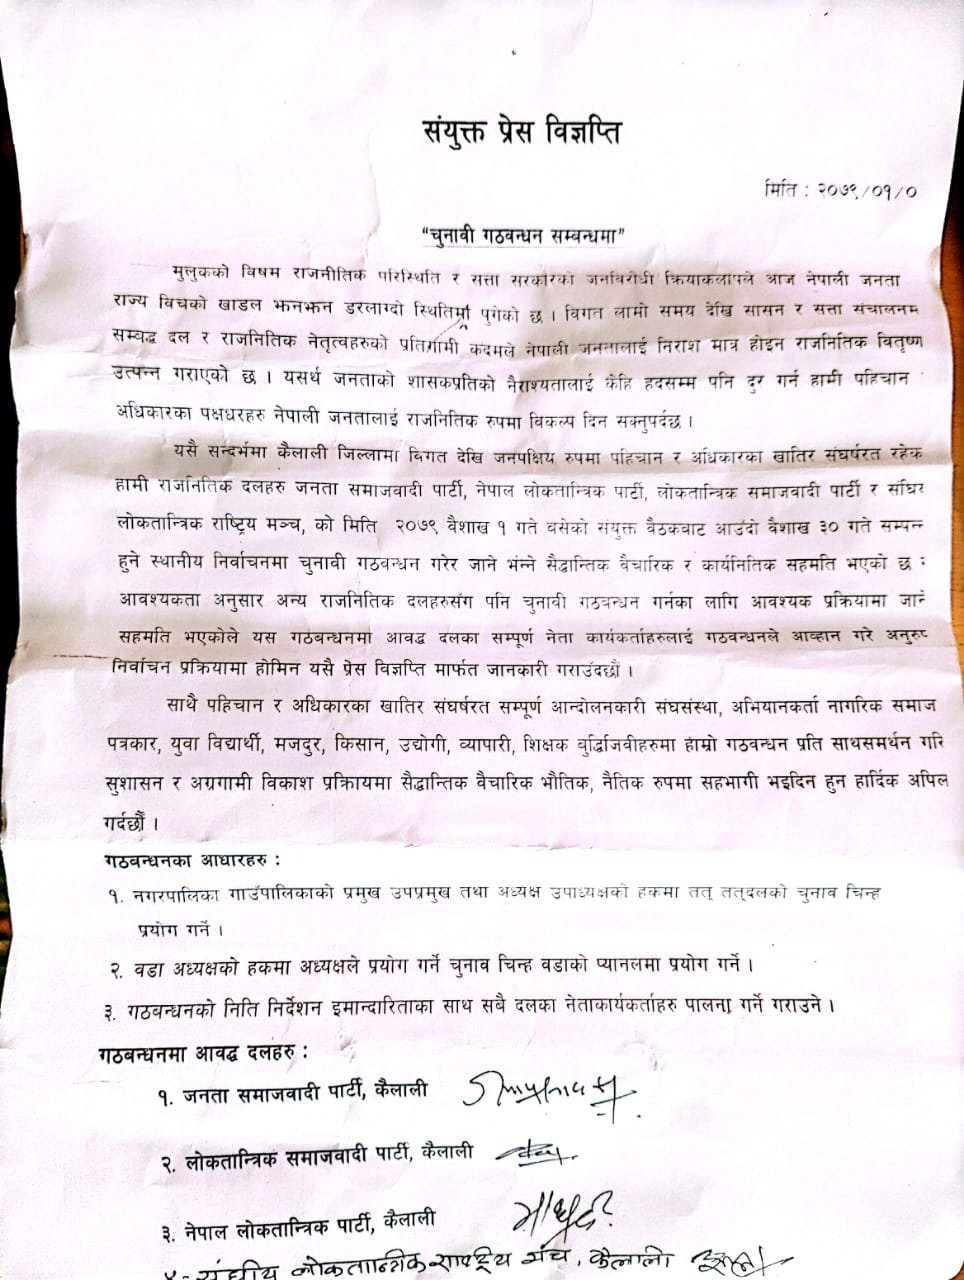 संयुक्त प्रेस विज्ञप्ति
मिति : २०७९/०१/०
“चुनावी गठवन्धन सम्बन्धमा”
मुलुकको विषम राजनीतिक परिस्थिति र सत्ता सरकारको जनविरोधी क्रियाकलापले आज नेपाली जनता
राज्य विचको खाडल झनझन डरलाग्दो स्थितिमा पुगेको छ । विगत लामो समय देखि सासन र सत्ता संचालनम
सम्वद्ध दल र राजनितिक नेतृत्वहरुको प्रतिगामी कदमले नेपाली जनतालाई निराश मात्र होइन राजनितिक वितृष्ण
उत्पन्न गराएको छ । यसर्थ जनताको शासकप्रतिको नैराश्यतालाई केहि हदसम्म पनि दुर गर्न हामी पहिचान
अधिकारका पक्षधरहरु नेपाली जनतालाई राजनितिक रुपमा विकल्प दिन सक्नुपर्दछ ।
यसै सन्दर्भमा कैलाली जिल्लामा विगत देखि जनपक्षिय रुपमा पहिचान र अधिकारका खातिर संघर्षरत रहेक
हामी राजनितिक दलहरु जनता समाजवादी पार्टी, नेपाल लोकतान्त्रिक पार्टी, लोकतान्त्रिक समाजवादी पार्टी र संघिर
लोकतान्त्रिक राष्ट्रिय मञ्च, को मिति २०७९ वैशाख १ गते वसेको संयुक्त वैठकवाट आउँदो वैशाख ३० गते सम्पन्न
हुने स्थानीय निर्वाचनमा चुनावी गठवन्धन गरेर जाने भंन्ने सैद्धान्तिक वैचारिक र कार्यनितिक सहमति भएको छ
आवश्यकता अनुसार अन्य राजनितिक दलहरुसंग पनि चुनावी गठवन्धन गर्नका लागि आवश्यक प्रक्रियामा जाने
सहमति भएकोले यस गठबन्धनमा आवद्ध दलका सम्पूर्ण नेता कार्यकर्ताहरुलाई गठवन्धनले आव्हान गरे अनुरुप
निर्वाचन प्रक्रियामा होमिन यसै प्रेस विज्ञप्ति मार्फत जानकारी गराउँदछौं ।
साथै पहिचान र अधिकारका खातिर संघर्षरत सम्पूर्ण आन्दोलनकारी संघसंस्था, अभियानकर्ता नागरिक समाज
पत्रकार, युवा विद्यार्थी, मजदुर, किसान, उद्योगी, व्यापारी, शिक्षक वुर्द्धिजिवीहरुमा हाम्रो गठवन्धन प्रति साथसमर्थन गरि
सुशासन र अग्रगामी विकाश प्रक्रियामा सैद्धान्तिक वैचारिक भौतिक, नैतिक रुपमा सहभागी भइदिन हुन हार्दिक अपिल
गर्दछौँ ।
गठवन्धनका आधारहरु :
१. नगरपालिका गाउँपालिकाको प्रमुख उपप्रमुख तथा अध्यक्ष उपाध्यक्षको हकमा तत् तत्दलको चुनाव चिन्ह
प्रयोग गर्ने ।
२. वडा अध्यक्षको हकमा अध्यक्षले प्रयोग गर्ने चुनाव चिन्ह वडाको प्यानलमा प्रयोग गर्ने ।
३. गठवन्धनको निति निर्देशन इमान्दारिताका साथ सबै दलका नेताकार्यकर्ताहरु पालना गर्ने गराउने ।
गठवन्धनमा आवद्ध दलहरु :
१. जनता समाजवादी पार्टी, कैलाली
२. लोकतान्त्रिक समाजवादी पार्टी, कैलाली
३. नेपाल लोकतान्त्रिक पार्टी, कैलाली
४- संघीय लोकतान्त्रिक राष्ट्रिय मंच, कैलाली